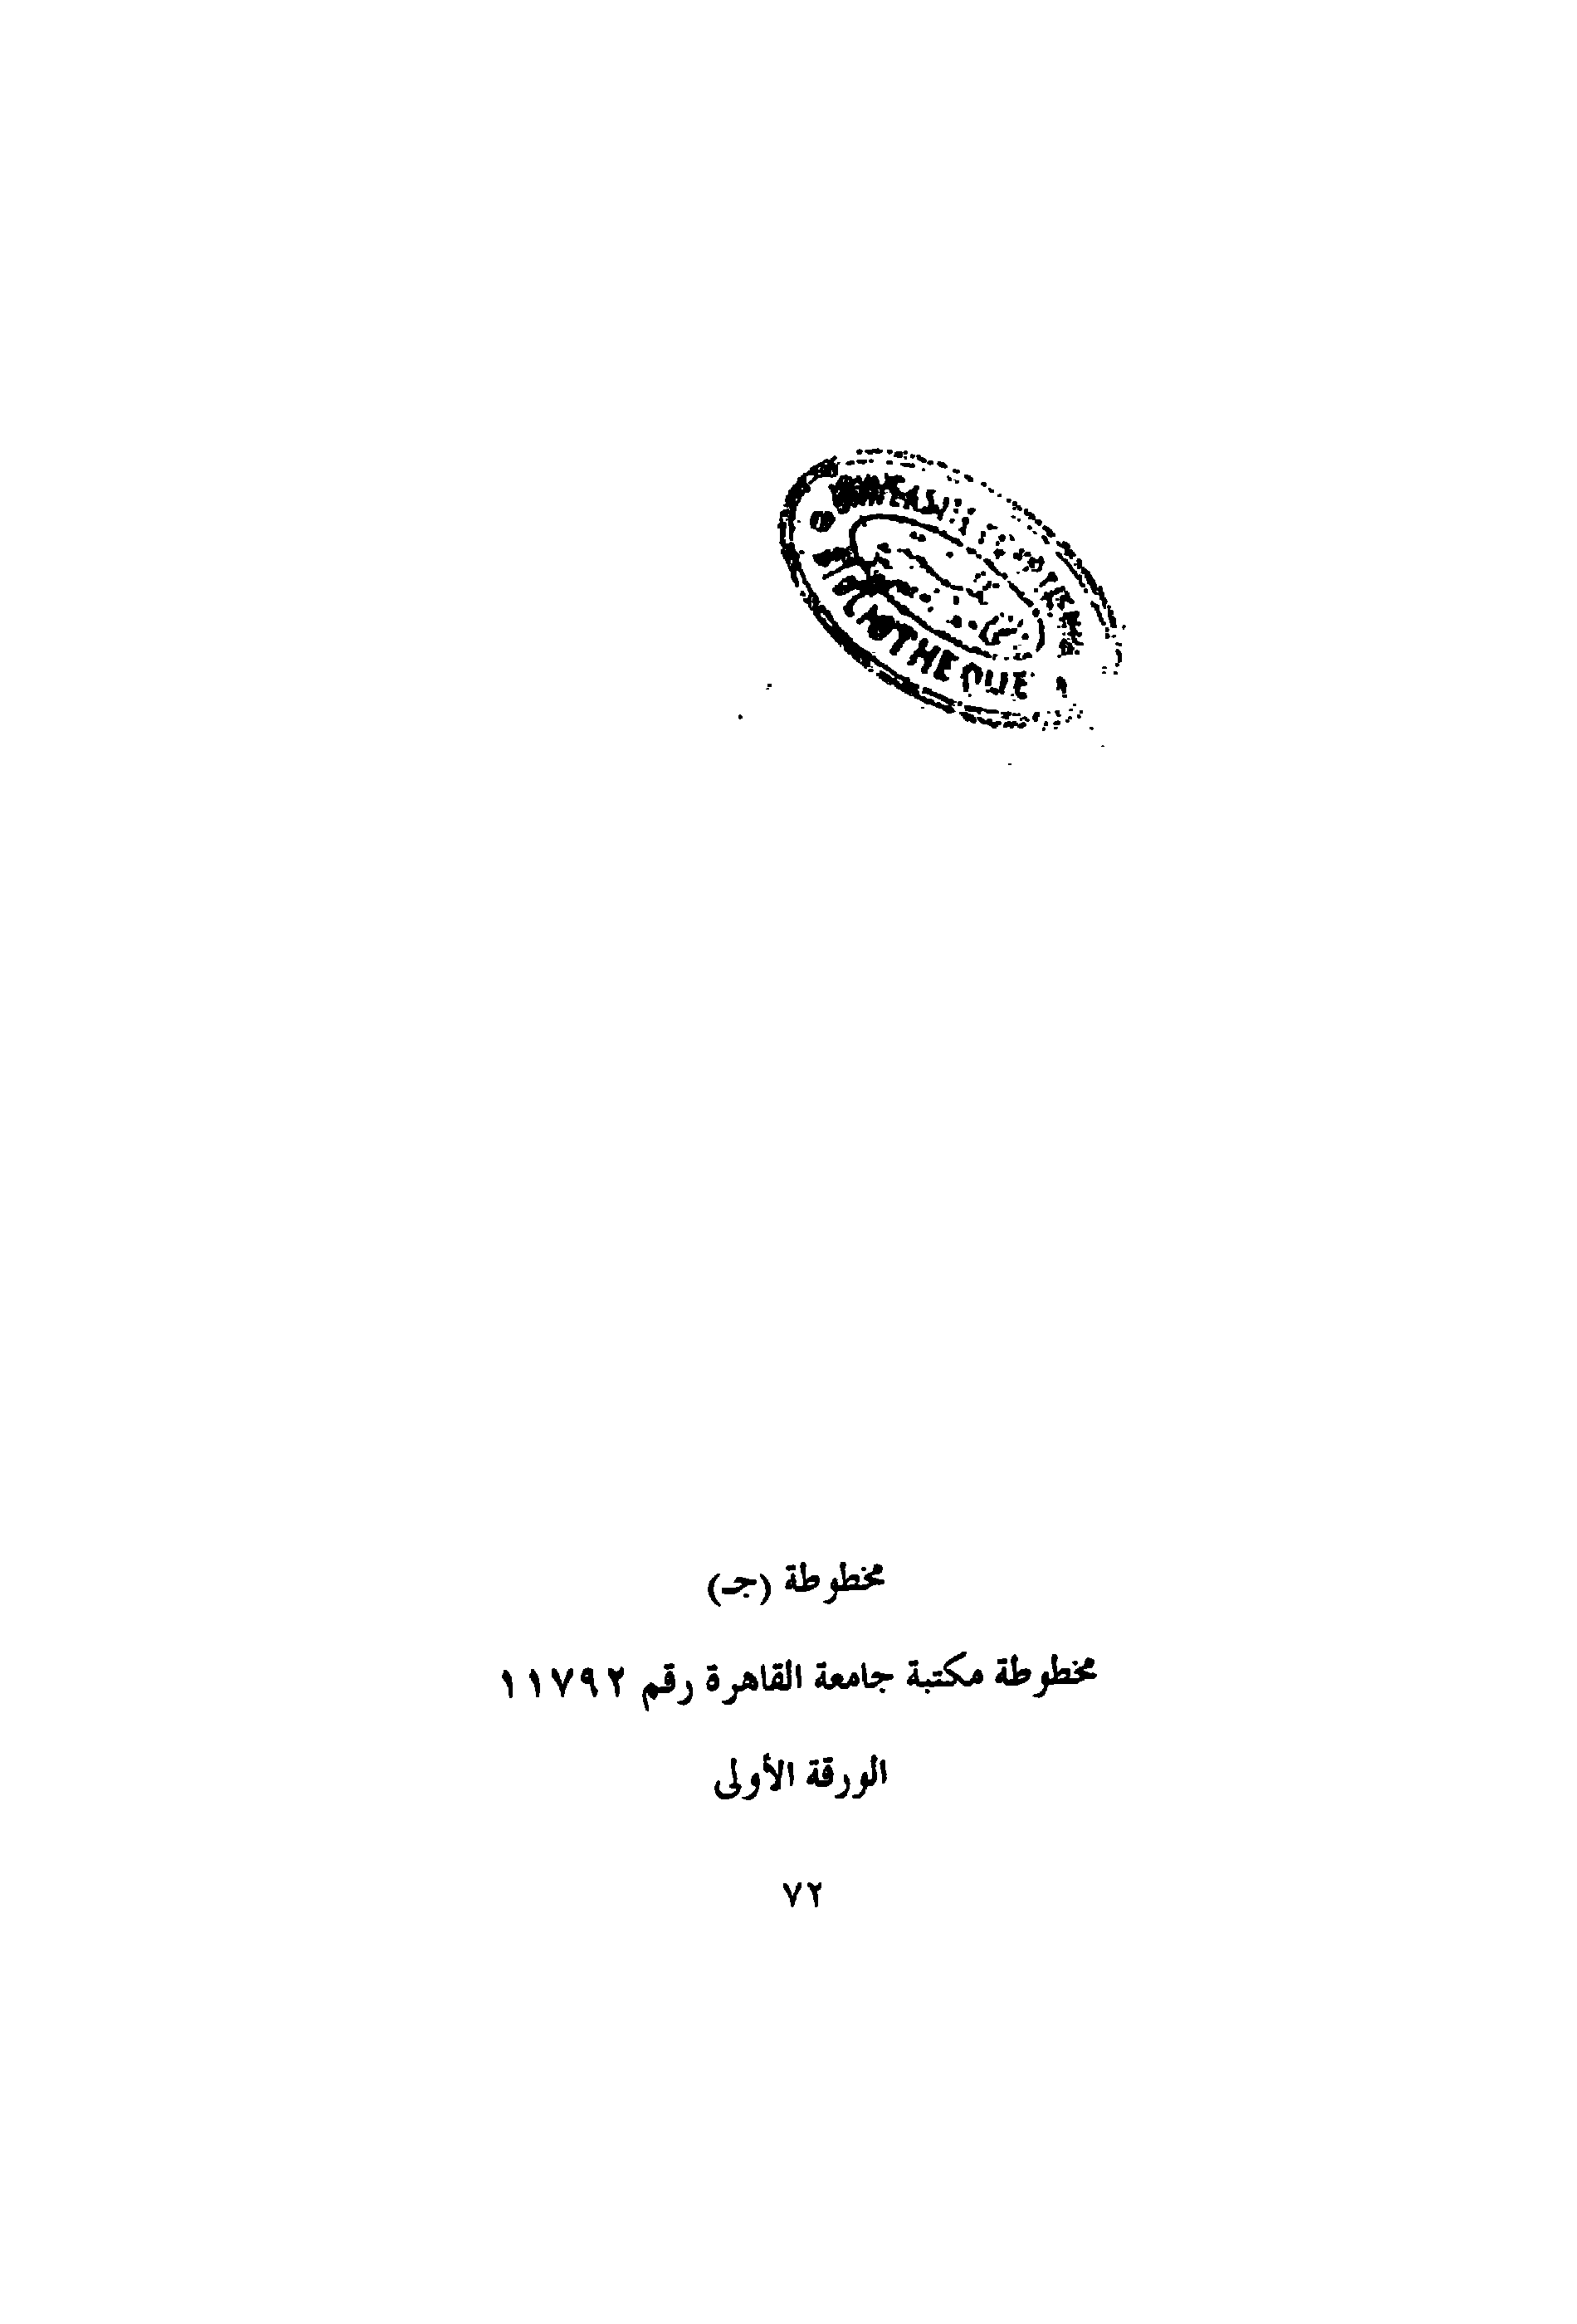 BIBLIOTHEQUE
مخطوطة (جـ)
مخطوطة مكتبة جامعة القاهرة رقم ١١٧٩٢
الورقة الأولى
٧٢